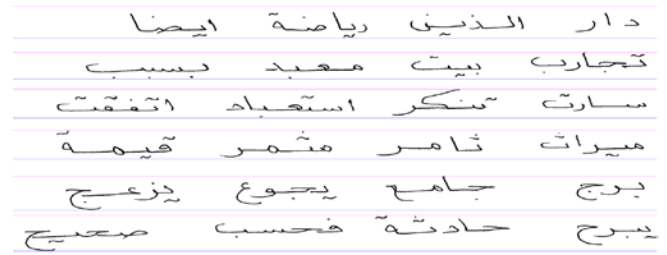 دار الذين رياضة ايضا
تجارب بيت معبد بسبب
سارت تنكر استعباد اتفقت
ميراث ثامر مثمر قيمة
برج جامع يجوع يزعج
يبرح حادثة فحسب صحيح